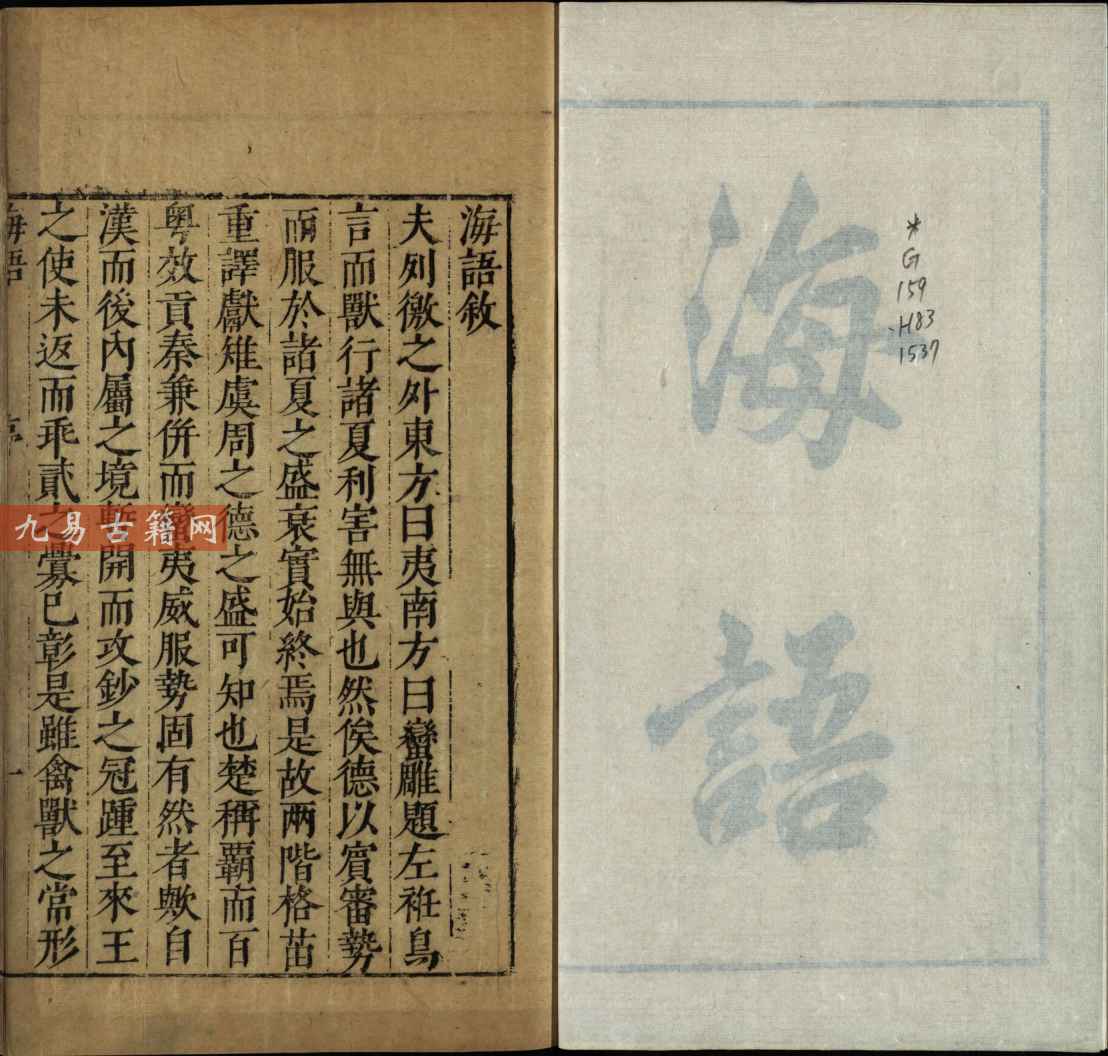 海
語
*
G
159
.H83
1537
海語敘
夫列徼之外東方曰夷南方曰蠻雕題左袵鳥
言而獸行諸夏利害無與也然俟德以賓審勢
而服於諸夏之盛衰實始終焉是故兩階格苗
重譯獻雉虞周之德之盛可知也楚稱霸而百
粤效貢秦兼併而蠻夷威服勢固有然者歟自
漢而後內屬之境暫開而攻鈔之冦踵至來王
之使未返而乖貳之釁已彰是雖禽獸之常形
海語
序
一
九易古籍网